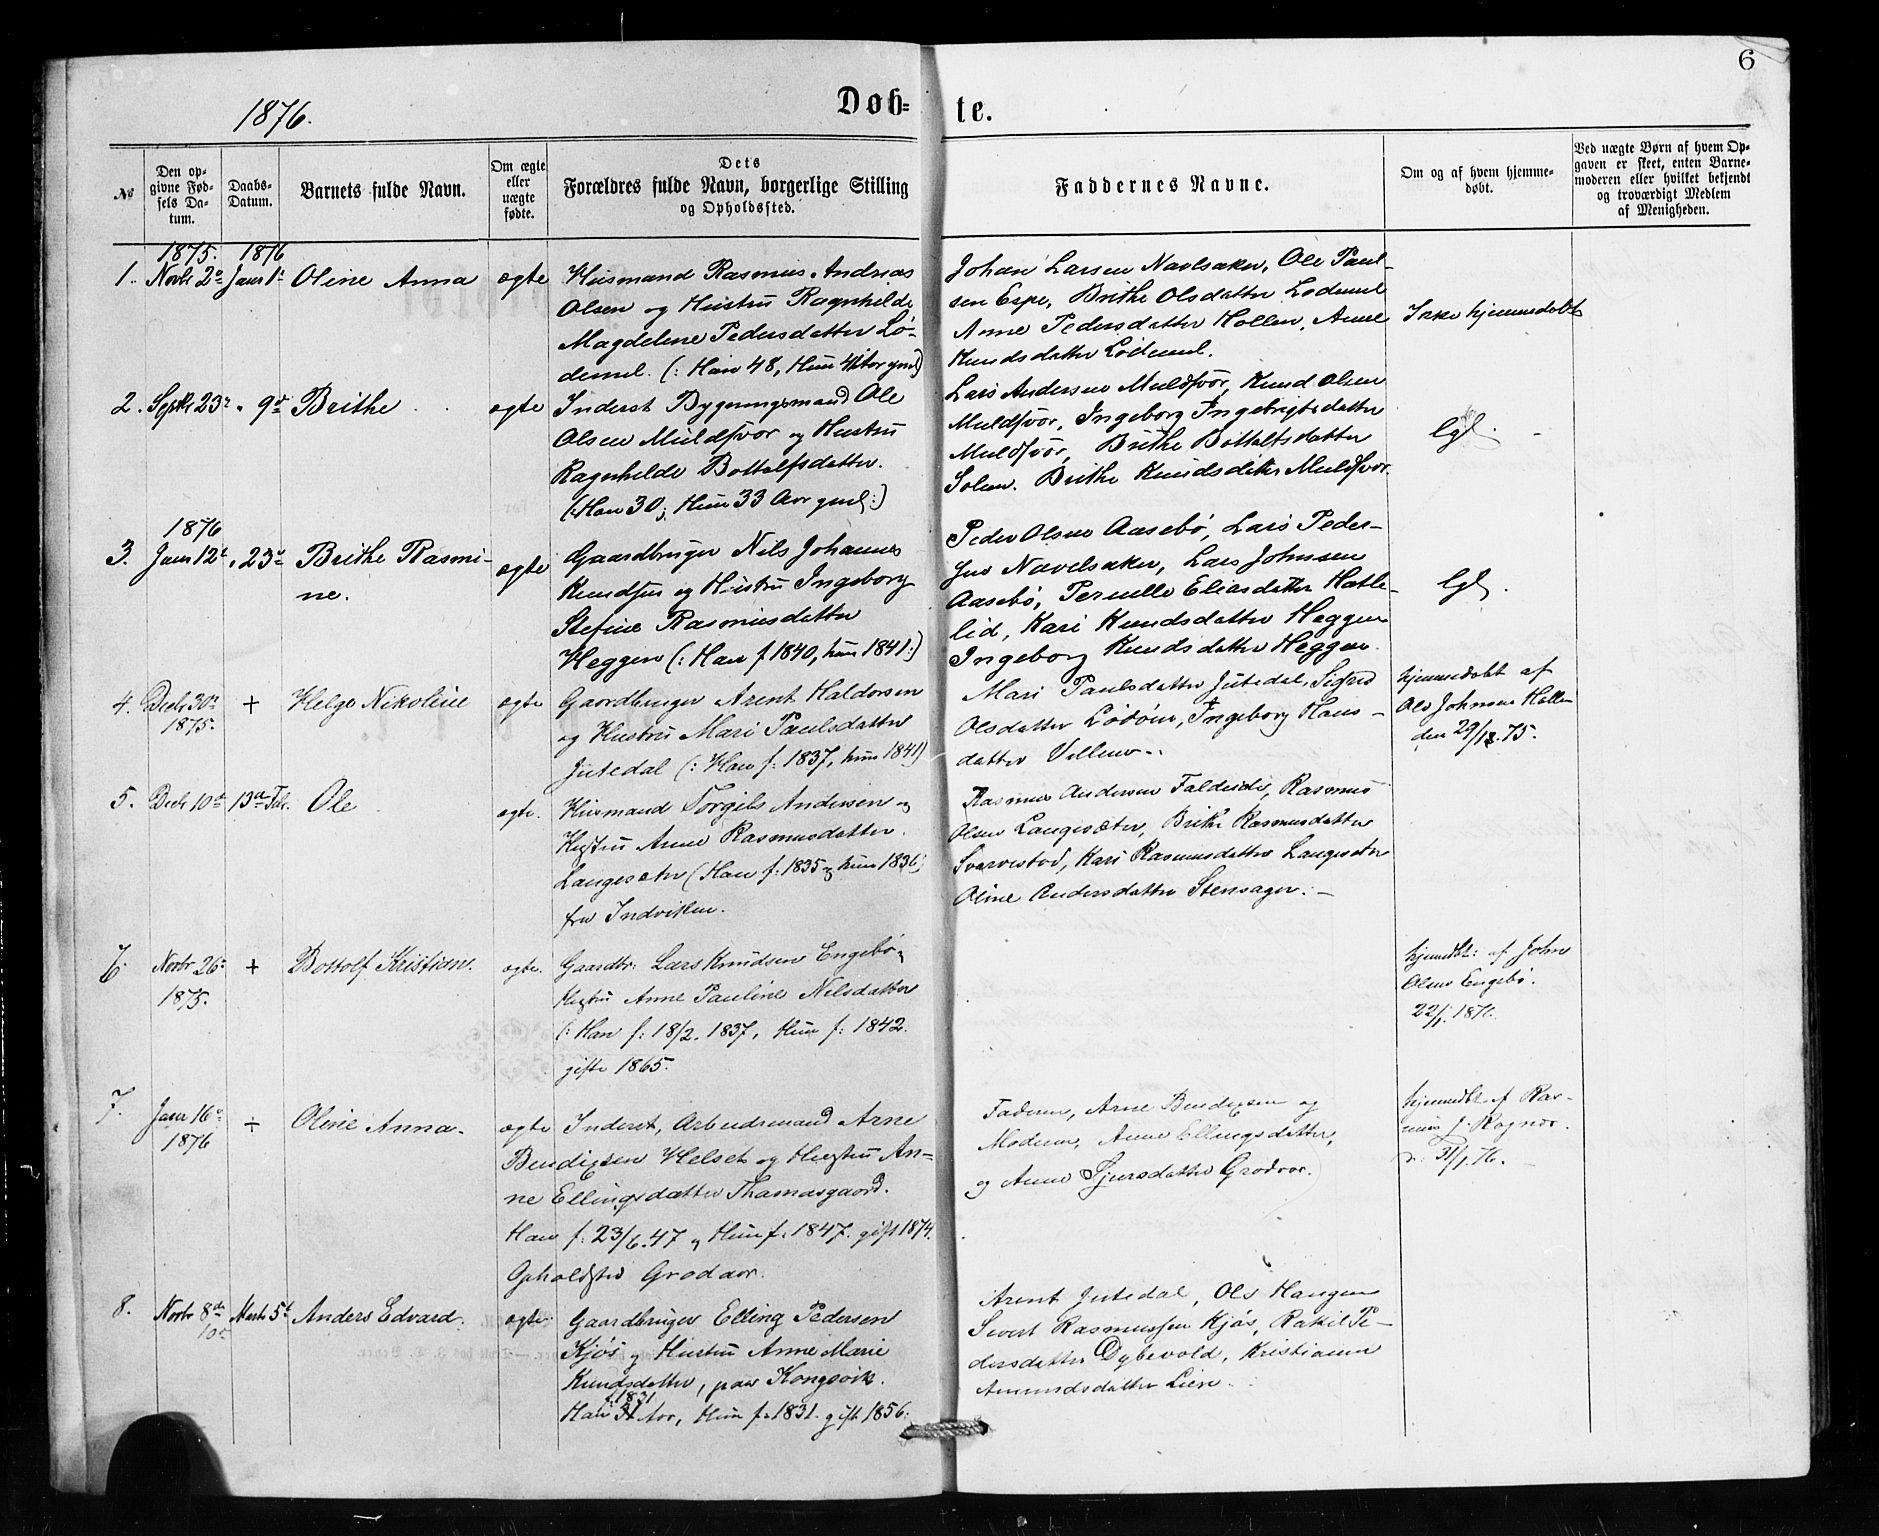 6
1876.
Døb= te.
No
Den opgivne Fødsels Datum.
Daabs-Datum.
Barnets fulde Navn.
Om ægte eller uægte fødte.
Dets Forældres fulde Navn, borgerlige Stilling og Opholdssted.
Faddernes Navne.
Om og af hvem hjemmedøbt.
Ved uægte Børn af hvem Opgaven er skeet, enten Barnemoderen eller hvilket bekjendt og troværdigt Medlem af Menigheden.
1875. 1876
1. Novbr 2 Januar 1 Oline Anna ægte
Husmand Rasmus Andrias
Olsen og Hustru Ragnhilde
Magdelene Pedersdatter Lø-
demel. (: Han 48, Hun 41 Aar gml)
Johan Larsen Navelsaker, Ole Paul-
sen Espe, Brithe Olsdatter Lødemel
Anne Pedersdatter Hollen, Anne
Knudsdatter Lødemel.
Ikke hjemmedøbt
2. Septbr 23 " 9de Brithe ægte
Inderst Bygningsmand Ole
Olsen Muldsvor og Hustru
Ragnhilde Bottolfsdatter.
(: Han 30, Hun 33 Aar gml:)
Lars Andersen Muldsvor, Knud Olsen
Muldsvor, Ingeborg Ingebrigtsdatter
Muldsvor, Brithe Bottolfsdatter
Solem. Brithe Knudsdatter Muldsvor.
lgl.
1876
3. Januar 12 " 23 Brithe Rasmi-
ne. ægte
Gaardbruger Nils Johannes
Knudsen og Hustru Ingeborg
Stefine Rasmusdatter
Heggen (: Han f 1840, hun 1841:)
Peder Olsen Aasebø, Lars Peder-
sen Navelsaker, Lars Johnsen
Aasebø, Pernille Eliasdatter Hatle-
lid, Kari Knudsdatter Heggen
Ingeborg Knudsdatter Heggen.
lgl.
4. Decbr 30
1875. + Helge Nikoline ægte
Gaardbruger Arent Haldorsen
og Hustru Mari Paulsdatter
Jutedal (: Han f: 1837, hun 1841)
Mari Paulsdatter Jutedal, Sigrid
Olsdatter Lødøen, Ingeborg Hans-
datter
hjemmedøbt af
Ole Johnsen Hollen
den 29/12.75.
5. Decbr 10 13 Febr. Ole ægte.
Husmand Torgils Andersen og
Hustru Anne Rasmusdatter
Langesæter (Han f. 1835 og hun 1836)
fra Indviken.
Rasmus Andersen Faldeide, Rasmus
Olsen Langesæter, Brithe Rasmusdatter
Svarvestad, Kari Rasmusdatter Langesæter
Oline Andersdatter Stensager. -
6. Novbr 26
1875. + Bottolf Kristian. ægte.
Gaardbr: Lars Knudsen Engebø og
Hustru Anne Pauline Nilsdatter
(: Han f: 18/2. 1837, Hun f: 1842.
gifte 1865.
hjemmedbt: af John
Olsen Engebø.
22/1. 1876.
7. Januar 16
1876 ÷ Oline Anna. ægte
Inderst, Arbeidsmand Arne
Bendixsen Helset og Hustru An-
ne Ellingsdatter Thomasgaard.
Han f. 23/6.47 og Hun f. 1847. gift 1874.
Opholdsted Grodaar.
Faderen, Arne Bendixsen og
Moderen, Anne Ellingsdatter,
og Anne Sjursdatter Grodaar.
hjemmedbt af Ras-
mus J.
31/1.76.
8. Novbr 8de
10 Marts 5 Anders Edvard. ægte.
Gaardbruger Elling Pedersen
Kjøs og Hustru Anne Marie
Knudsdatter, paa Kongsvik.
f. 1831
Han Aar, Hun f. 1831. gift 1856.
Arent Jutedal, Ole Haugen
Sivert Rasmussen Kjøs, Rakel Pe-
dersdatter Dybevold, Kristianne
Amundsdatter Lien.